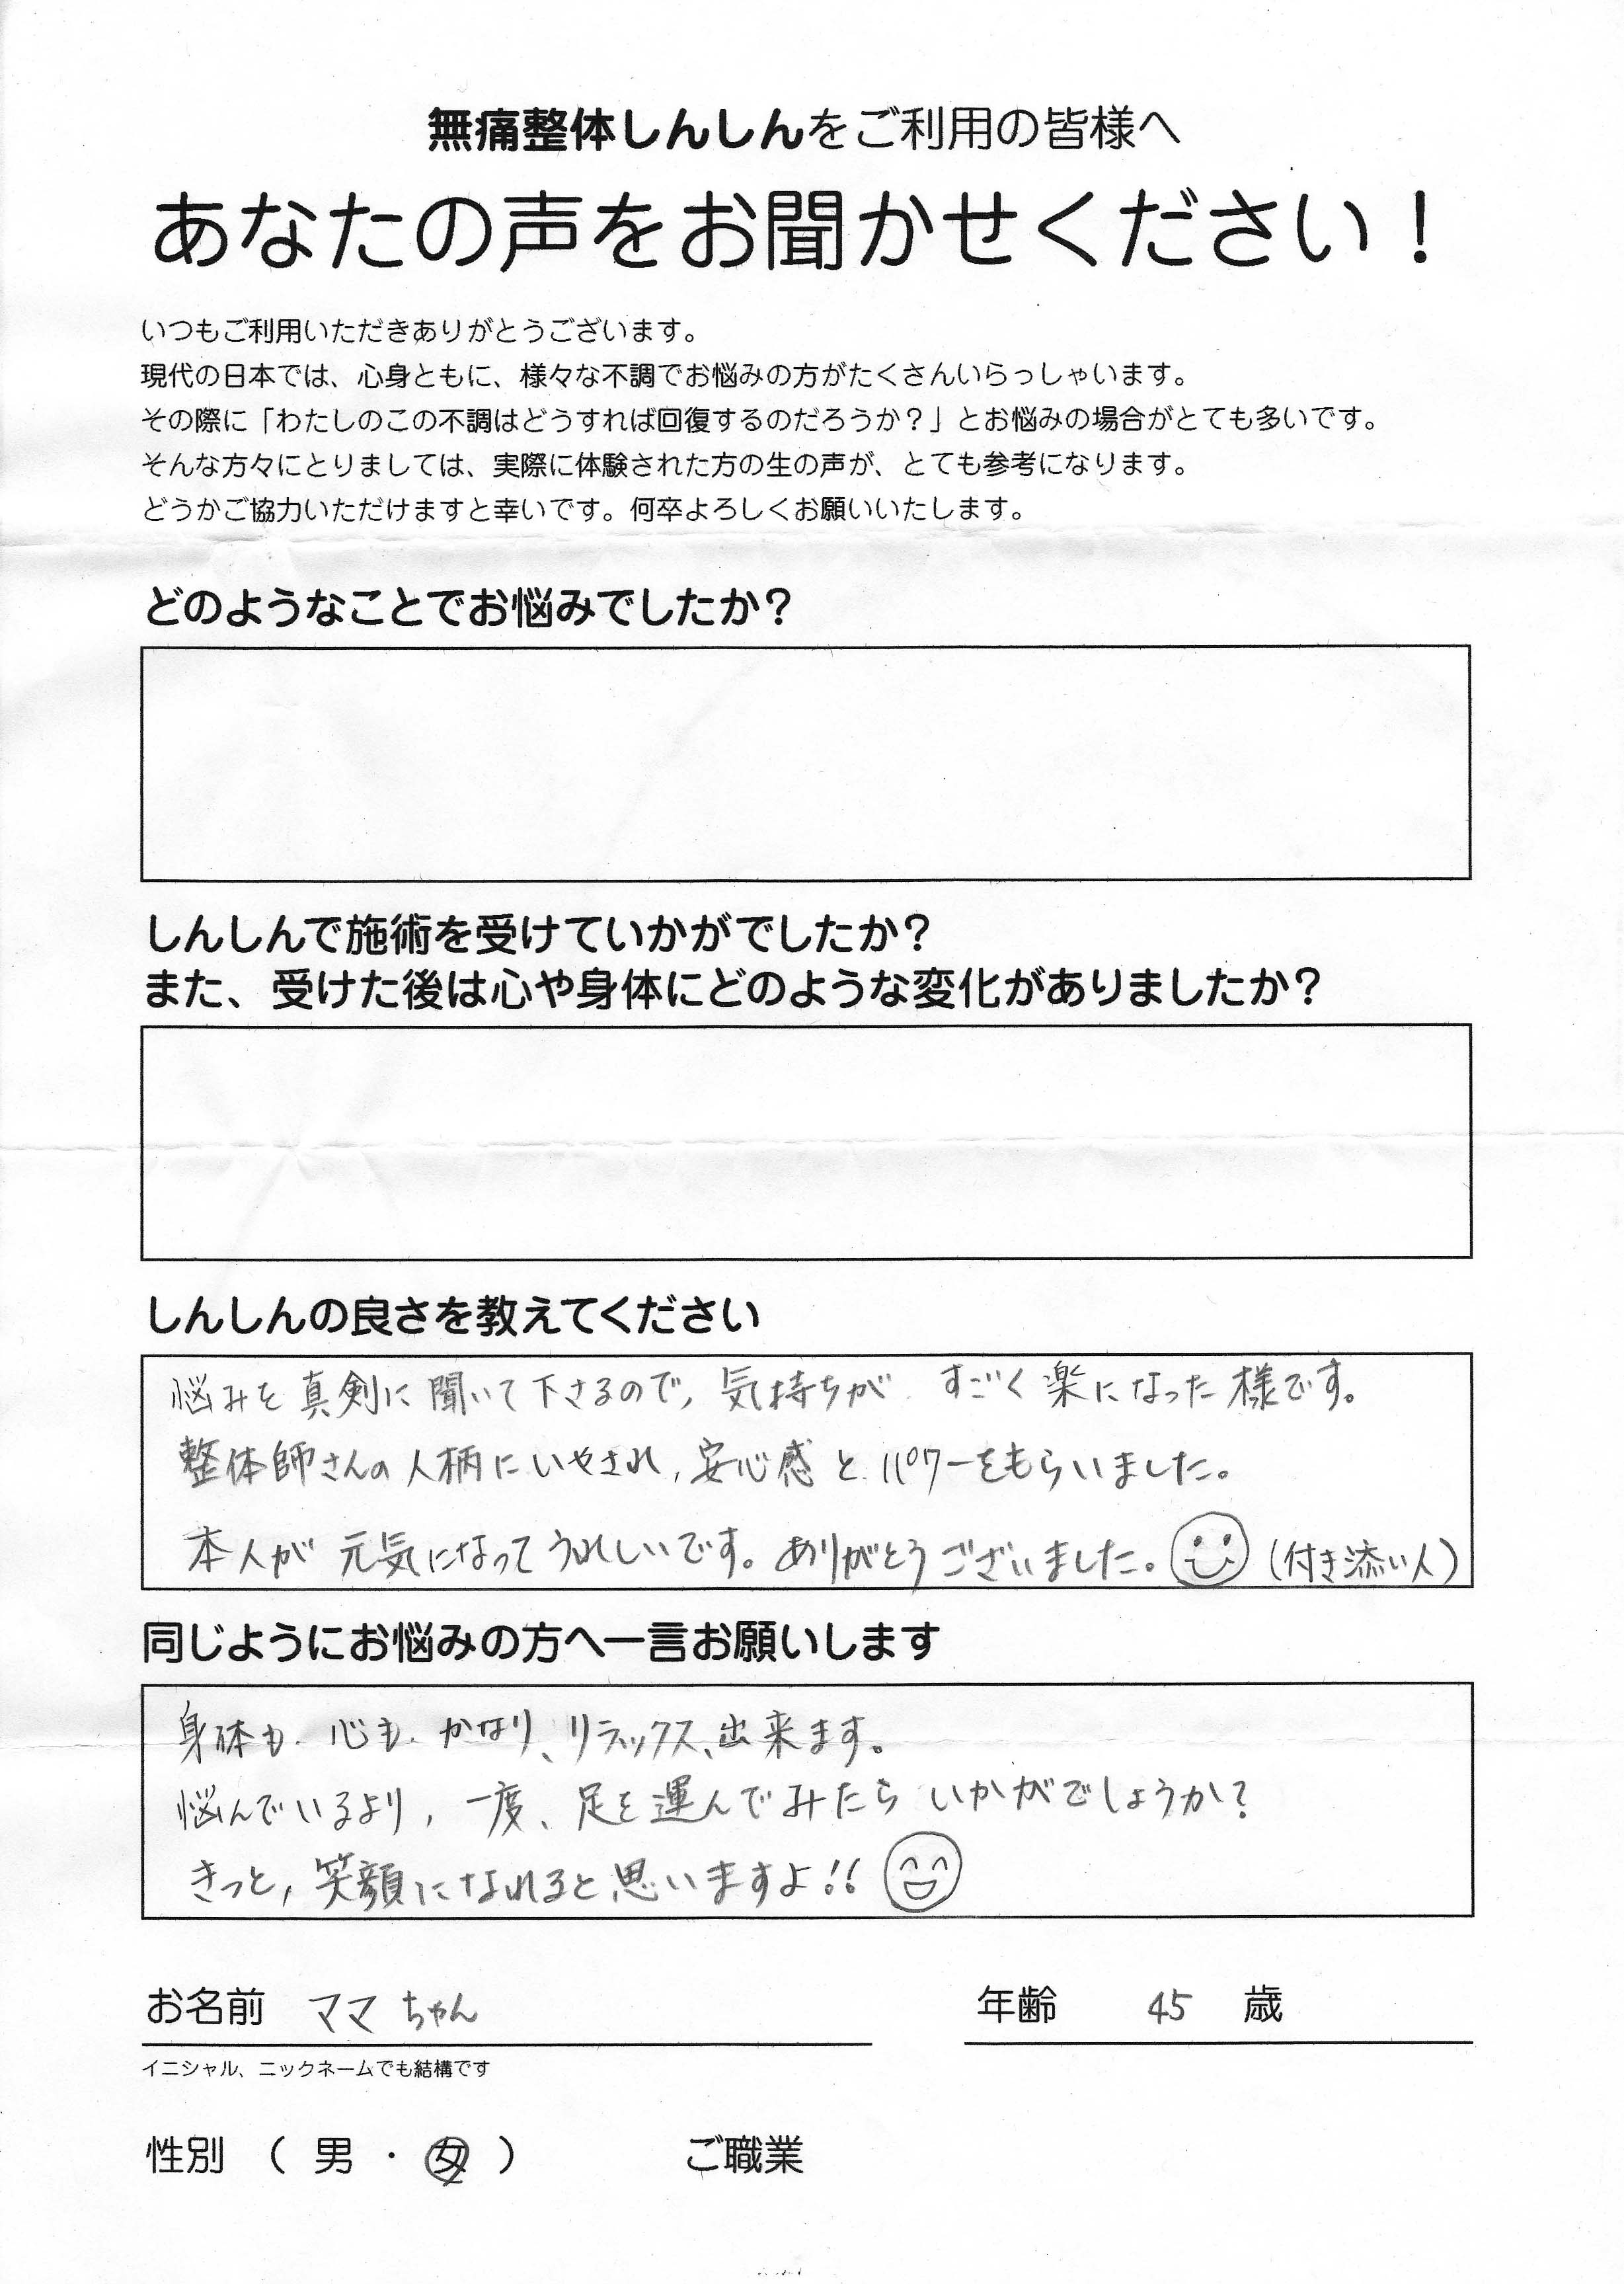 無痛整体しんしんをご利用の皆様へ
あなたの声をお聞かせください！
いつもご利用いただきありがとうございます。
現代の日本では、心身ともに、様々な不調でお悩みの方がたくさんいらっしゃいます。
その際に「わたしのこの不調はどうすれば回復するのだろうか？」とお悩みの場合がとても多いです。
そんな方々にとりましては、実際に体験された方の生の声が、とても参考になります。
どうかご協力いただけますと幸いです。何卒よろしくお願いいたします。
どのようなことでお悩みでしたか？
しんしんで施術を受けていかがでしたか？
また、受けた後は心や身体にどのような変化がありましたか？
しんしんの良さを教えてください
悩みを真剣に聞いて下さるので、気持ちが すごく楽になった様です。
整体師さんの人柄にいやされ、安心感とパワーをもらいました。
本人が元気になってうれしいです。ありがとうございました。（付き添い人）
同じようにお悩みの方へ一言お願いします
身体も、心も、かなり、リラックス、出来ます。
悩んでいるより、一度、足を運んでみたらいかがでしょうか？
きっと、笑顔になれると思いますよ！！
お名前 ママちゃん 年齢 45 歳
イニシャル、ニックネームでも結構です
性別 （ 男 ・ 女 ） ご職業